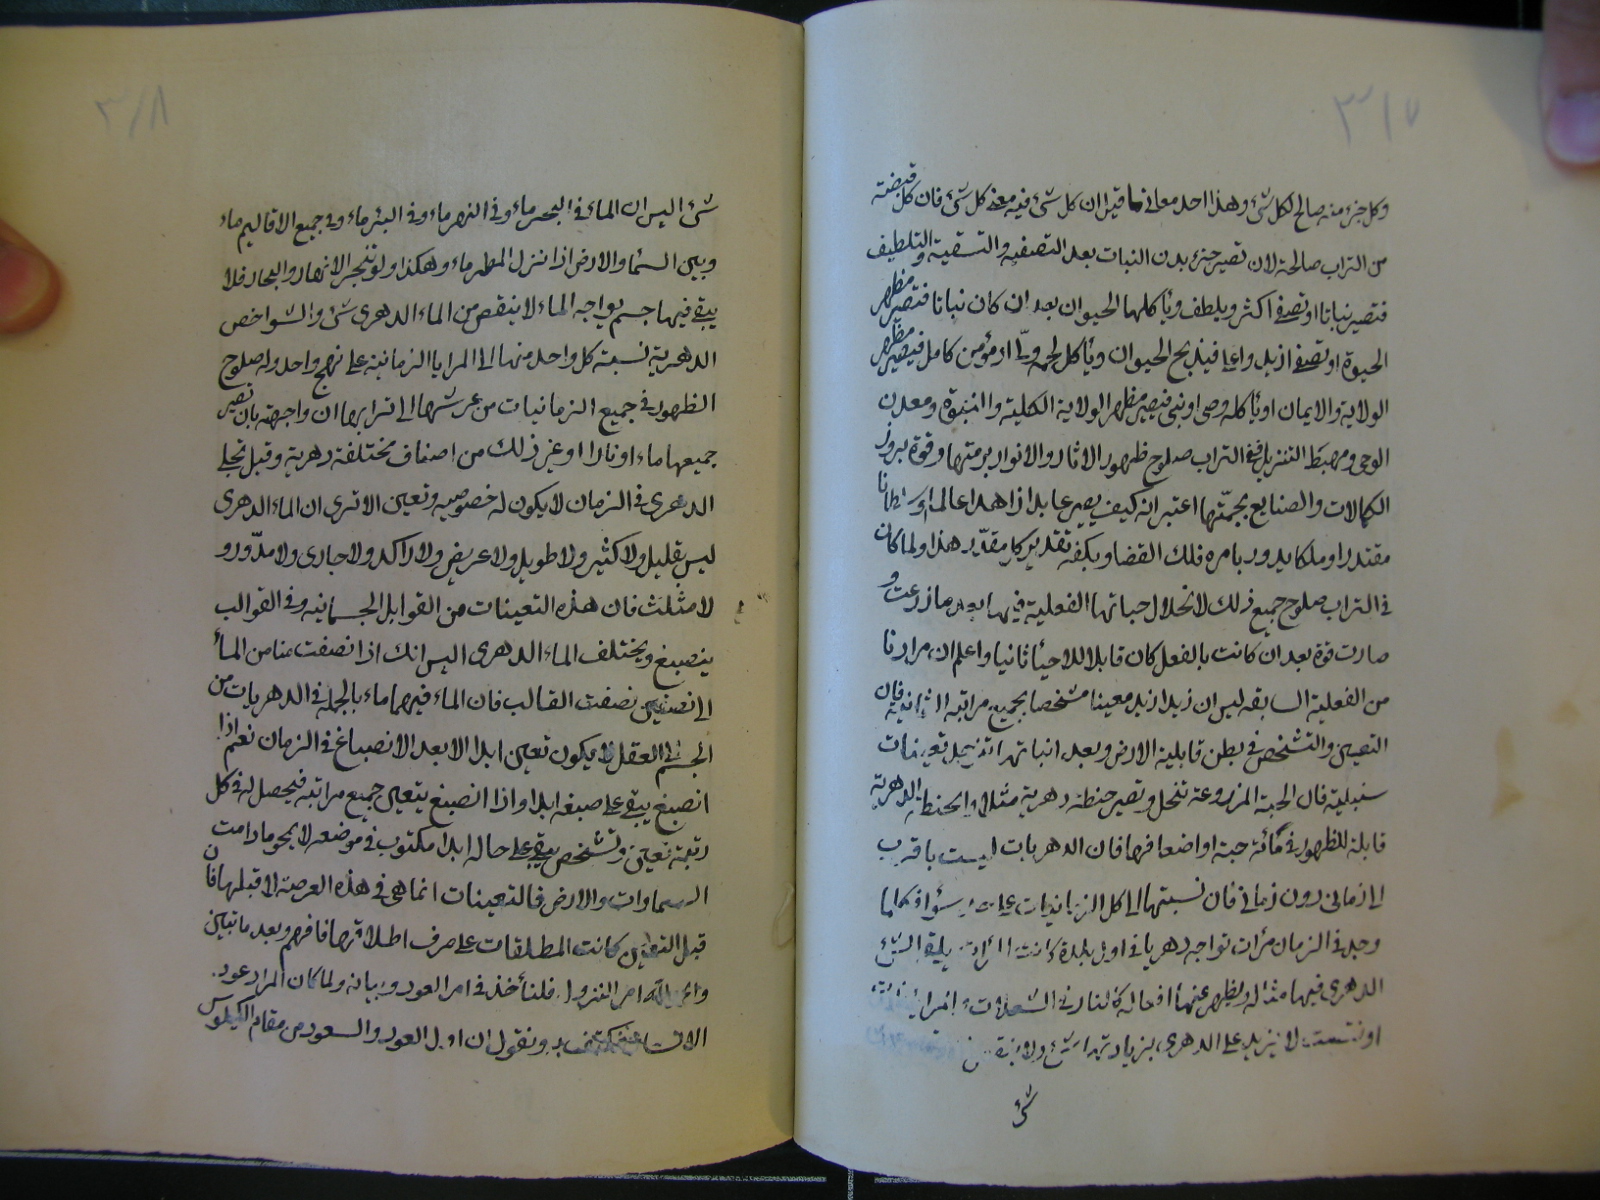 ٣١٧
وكل جزء منه صالح لكل شئ وهذا احد معانى ما قيل ان كل شئ فيه معنى كل شئ فان كل قبضة
من التراب صالحة لان تصير جزء بدن النبات بعد التصفيه والتسقية والتلطيف
فتصير نباتا او تصفى اكثر ويلطف ويأكلها الحيوان بعد ان كان نباتا فتصير مظهر
الحيوة او تصفى ازيد واعلى فيذبح الحيوان ويأكل لحمه ولىّ او مؤمن كامل فيصير مظهر
الولاية والايمان او يأكله وصى او نبى فيصير مظهر الولاية الكلية والنبوة ومعدن
الوحى ومهبط التنزيل ففى التراب صلوح ظهور الاثار والانوار برمتها وقوة بروز
الكمالات والصنايع بجمّتها اعتبر انه كيف يصير عابدا زاهدا عالما او سلطانا
مقتدرا او ملكا يدور بامره فلك القضا وبكفه تقدير كل مقدّر هذا ولما كان
فى التراب صلوح جميع ذلك لانحلال حباتها الفعلية فيها بعد ما زرعت و
صارت قوة بعد ان كانت بالفعل كان قابلا للاحياء ثانيا واعلم ان مرادنا
من الفعلية السابقه ليس ان زيدا زيد معينا مشخصا بجميع مراتبه الزمانية فان
التعين والتشخص فى بطن قابلية الارض وبعد انباتها تجد تعينات
سنبلية فان الحبة المزروعة تنحل وتصير حنطة دهرية مثلا والحنطة الدهرية
قابلة للظهور فى مأئة حبة او اضعافها فان الدهريات ليست باقرب
الى زمانى دون زمانى فان نسبتها الى كل الزمانيات على حد سواء فكلما
وجد فى الزمان مرأت تواجه دهريا فى اول بلدة كانت المرأت يلقى الشئ
الدهرى فيها مثاله ويظهر عنها افعاله كالنار فى الشعلات
او نقصت لا يزيد على الدهرى بزيادتها شئ ولا ينقص
شئ
٣١٨
شئ اليس ان الماء فى البحر ماء وفى النهر ماء وفى البئر ماء وفى جميع الاقاليم ماء
وبين السماء والارض اذا نزل المطر ماء وهكذا ولو تنجر الانهار والبحار فلا
يبقى فيها جسم يواجه الماء لا ينقص من الماء الدهرى شئ والشواخص
الدهرية نسبة كل واحد منها الى المرايا الزمانية على نهج واحد وله صلوح
الظهور فى جميع الزمانيات من عرشها الى ترابها ان واجهته بان تصير
جميعها ماء او نارا او غير ذلك من اصناف مختلفة دهرية وقبل تجلى
الدهرى فى الزمان لا يكون له خصوصيه وتعين الا ترى ان الماء الدهرى
ليس بقليل ولا كثير ولا طويل ولا عريض ولا راكد ولا جارى ولا مدّور و
لا مثلث فان هذه التعينات من القوابل الجسمانيه وفى القوالب
ينصبغ ويختلف الماء الدهرى اليس انك اذا نصفت منا من الماء
الى نصفين نصفت القالب فان الماء فيهما ماء بالجمله فى الدهريات من
الجسم الى العقل لا يكون تعين ابدا الا بعد الانصباغ فى الزمان نعم اذا
انصبغ يبقى على صبغه ابدا واذا انصبغ يتعين جميع مراتبه فيحصل له فى كل
رتبة تعين وتشخص يبقى على حاله ابدا مكتوب فى موضعه لا يمحو ما دامت
السماوات والارض فالتعينات انما هى فى هذه العرصة لا قبلها فان
قبل التعين كانت المطلقات على صرف اطلاقها فافهم وبعد ما تبين
امر النزول فلنأخذ فى امر العود وبيانه ولما كان المراد عود
به ونقول ان اول العود والصعود من مقام الكيلوس